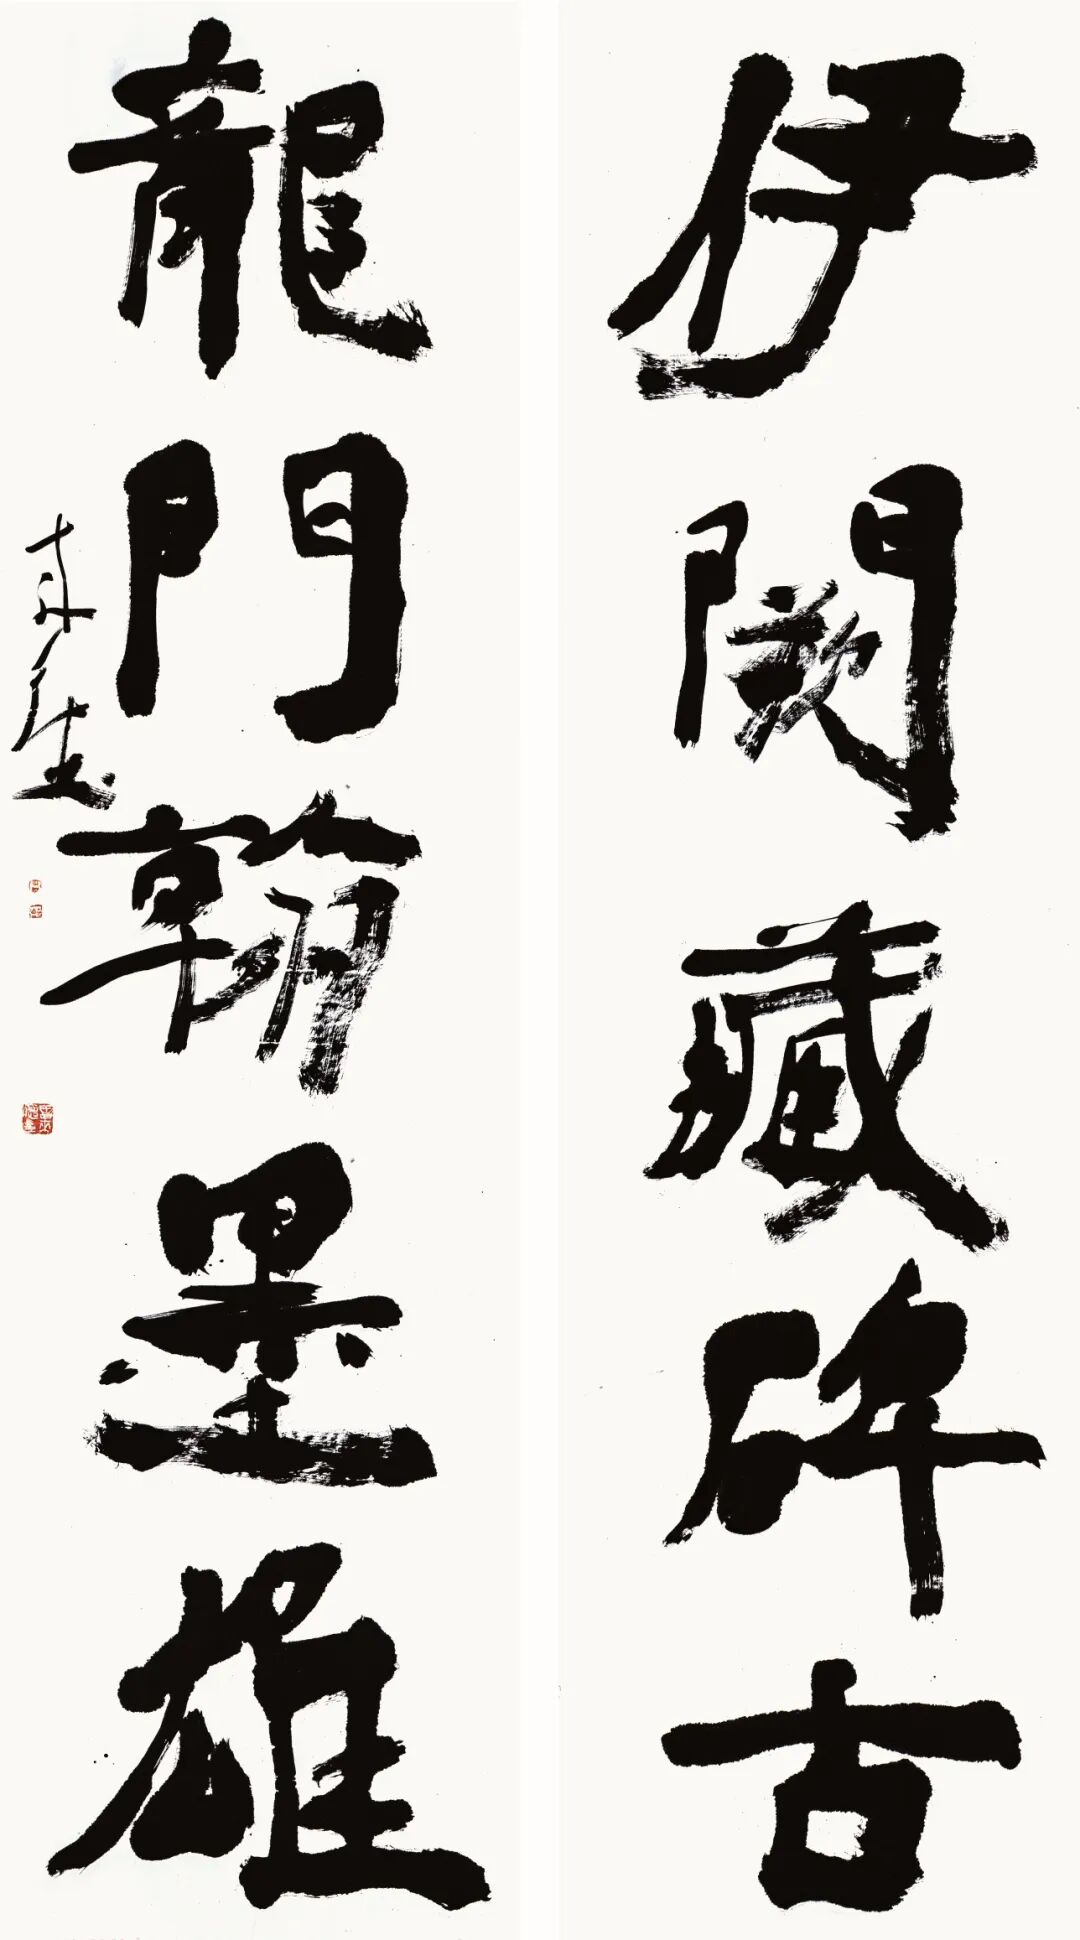 伊闕藏碑古
龍門翰墨雄